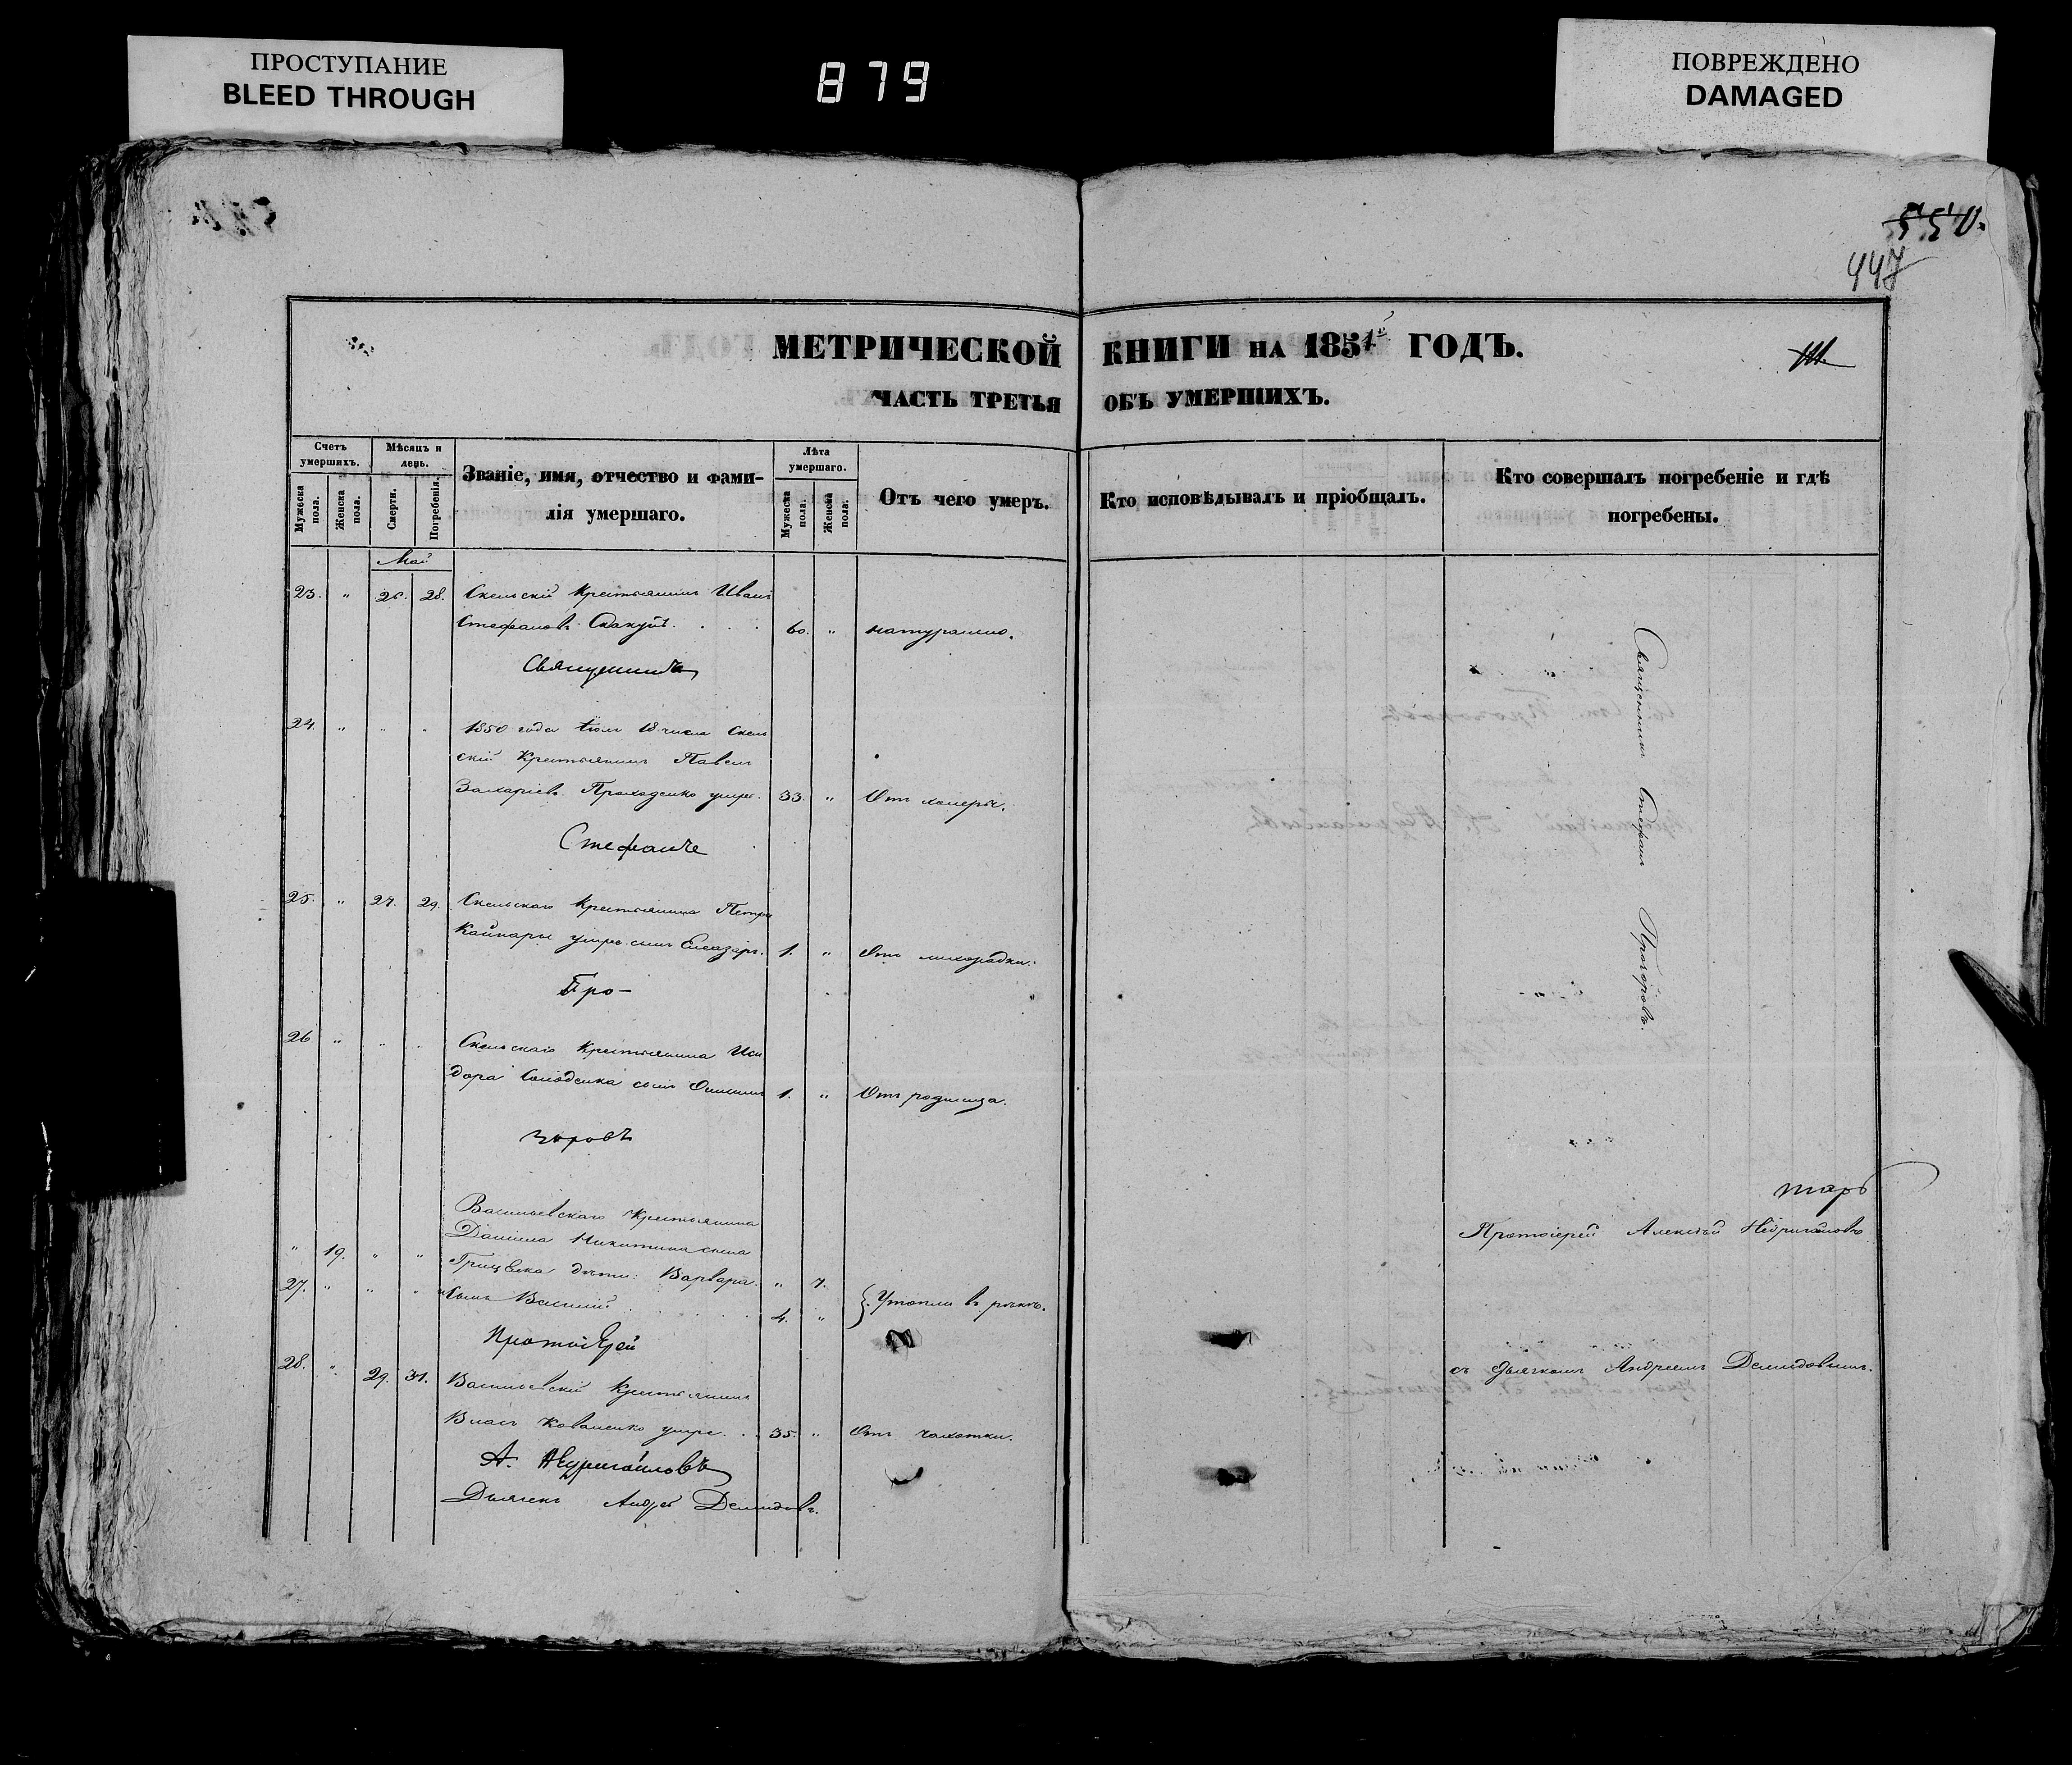 ПРОСТУПАНИЕ
BLEED THROUGH
879
ПОВРЕЖДЕНО
DAMAGED
550.
447
МЕТРИЧЕСКОЙ КНИГИ НА 1851 ГОДЪ.
ЧАСТЬ ТРЕТЬЯ ОБЪ УМЕРШИХЪ.
Счетъ умершихъ.
Мужеска пола.
Женска пола.
Мѣсяцъ и день.
Смерти.
Погребенія.
Званіе, имя, отчество и фами-
лія умершаго.
Лѣта умершаго.
Мужеска пола.
Женска пола.
Отъ чего умеръ.
Кто исповѣдывалъ и пріобщалъ.
Кто совершалъ погребеніе и гдѣ
погребены.
Май
23. " 26. 28. Скельскій Крестьянинъ Иванъ
Стефановъ 60. " натурально.
Священникъ
24. " " " 1850 года 18 числа Скель
скій Крестьянинъ Павелъ
Захаріевъ Проходенко умре. 33. " Отъ холеры.
Стефанъ
25. " 27. 29. Скельскаго Крестьянина Петра
умре сынъ Елеазаръ. 1. " Отъ лихорадки.
Про-
26 " " " Скельскаго Крестьянина Иси
дора сынъ 1. " Отъ родимца.
зоровъ
Васильевскаго Крестьянина
Даніила Никитина сына
" 19. " " Гриценка дѣти: Варвара. " 7.
27. " " " Сынъ Василій 4. " Утопли въ рѣкѣ.
Протоіерей
28. " 29. 31. Васильевскій Крестьянинъ
Власъ Коваленко умре. 35. " Отъ чахотки.
А.
Дьячекъ Андрей Демидовъ.
Священникъ Стефанъ Прозоровъ.
Протоіерей Алексѣй
съ дьячкомъ Андреемъ Демидовымъ.